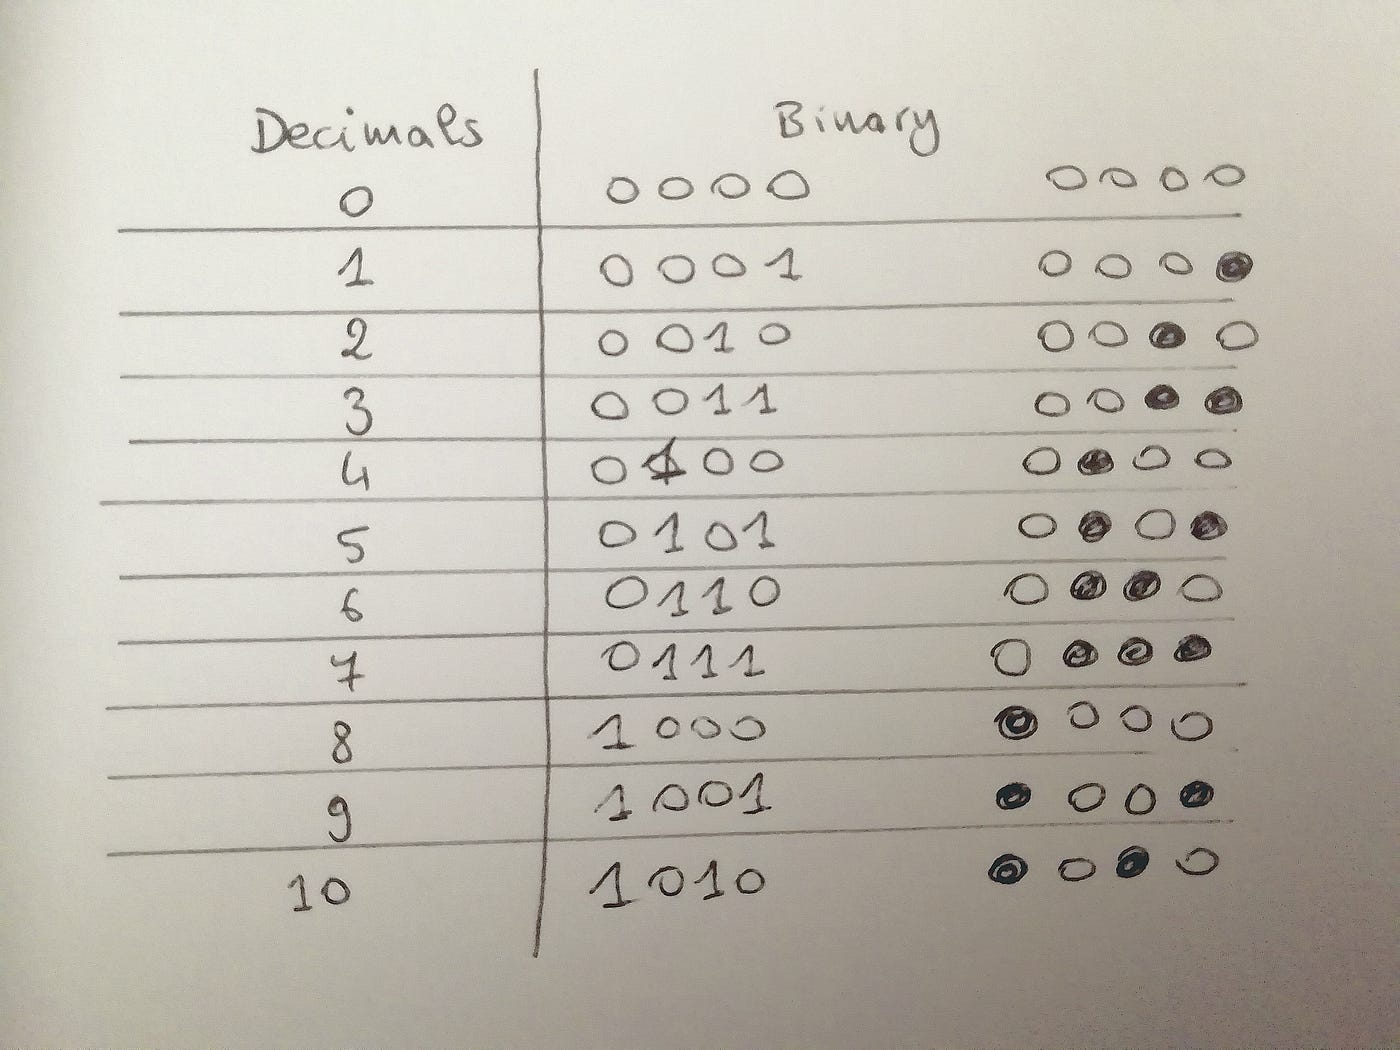 Decimals Binary
0 0000
1 0001
2 0010
3 0011
4 0100
5 0101
6 0110
7 0111
8 1000
9 1001
10 1010